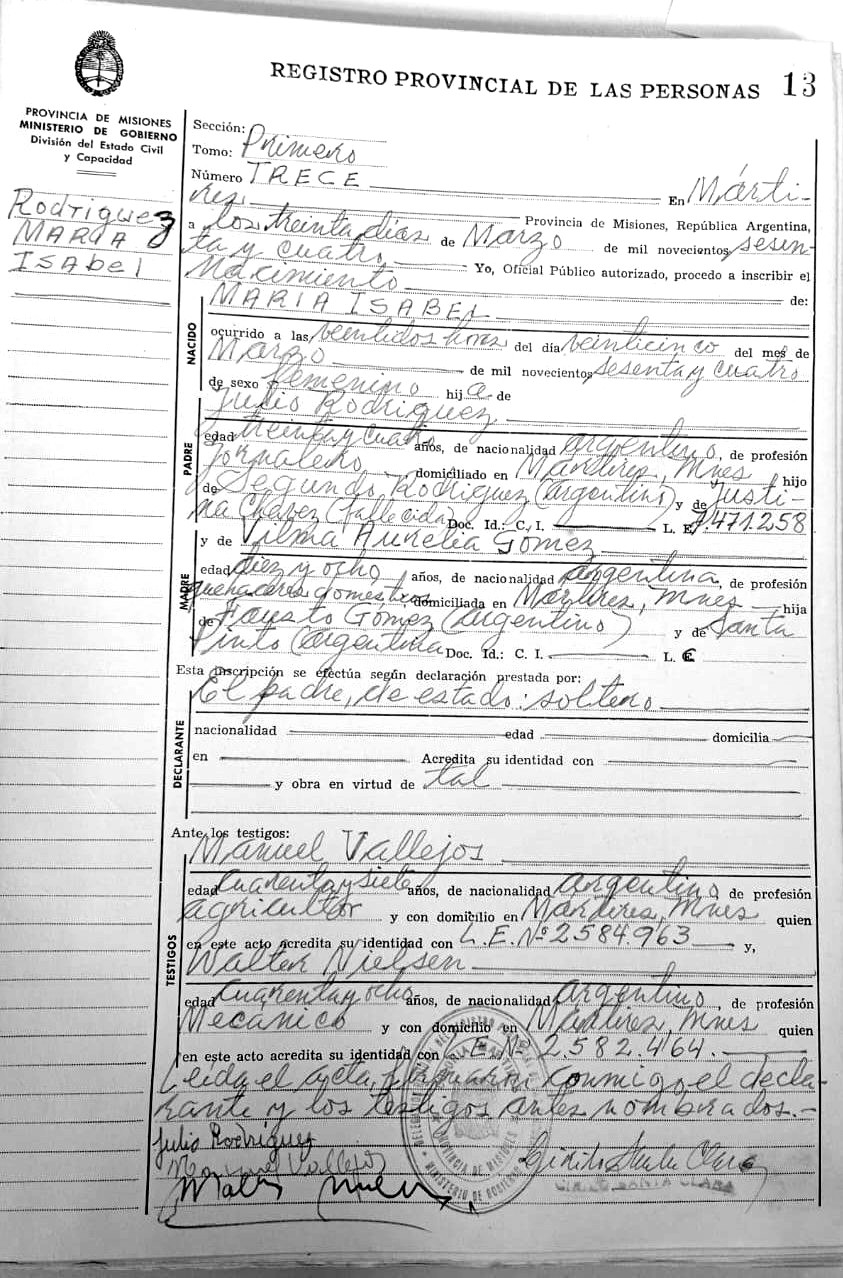 REGISTRO PROVINCIAL DE LAS PERSONAS 13
PROVINCIA DE MISIONES
MINISTERIO DE GOBIERNO
División del Estado Civil
y Capacidad
Rodriguez
MARIA
ISAbel
Sección:
Tomo: Primero
Número TRECE En Márti-
res Provincia de Misiones, República Argentina,
a los treinta días de Marzo de mil novecientos sesen-
ta y cuatro Yo, Oficial Público autorizado, procedo a inscribir el
Nacimiento de:
NACIDO
MARIA ISABEL
ocurrido a las veintidos horas del día veinticinco del mes de
Marzo de mil novecientos sesenta y cuatro
de sexo femenino hija de
PADRE
Julio Rodriguez
edad treinta y cuatro años, de nacionalidad argentino, de profesión
Jornalero domiciliado en Mártires, Mnes hijo
de Segundo Rodriguez (argentino) y de Justi-
na Chavez (fallecida) Doc. Id.: C. I. L. E. 7.471.258
y de Vilma Aurelia Gomez
MADRE
edad diez y ocho años, de nacionalidad argentina, de profesión
quehaceres domesticos, domiciliada en Mártires, Mnes hija
de Fausto Gómez (argentino) y de Santa
Pinto (argentina Doc. Id.: C. I. L. E
Esta inscripción se efectúa según declaración prestada por:
El padre, de estado: soltero
DECLARANTE
nacionalidad edad domicilia
en Acredita su identidad con
y obra en virtud de tal
Ante los testigos:
TESTIGOS
Manuel Vallejos
edad Cuarenta y siete años, de nacionalidad argentino, de profesión
agricultor y con domicilio en Mártires, Mnes quien
en este acto acredita su identidad con L.E. Nº 2.584.963 y,
Walter Nielsen
edad Cuarenta y ocho años, de nacionalidad argentino, de profesión
Mecánico y con domicilio en Mártires, Mnes quien
en este acto acredita su identidad con L.E. Nº 2.582.464.
Leida el acta, firman conmigo, el decla-
rante y los testigos antes nombrados.-
Julio Rodriguez
Manuel Vallejos
PROVINCIA DE MISIONES
MINISTERIO DE GOBIERNO
SANTA CLARA